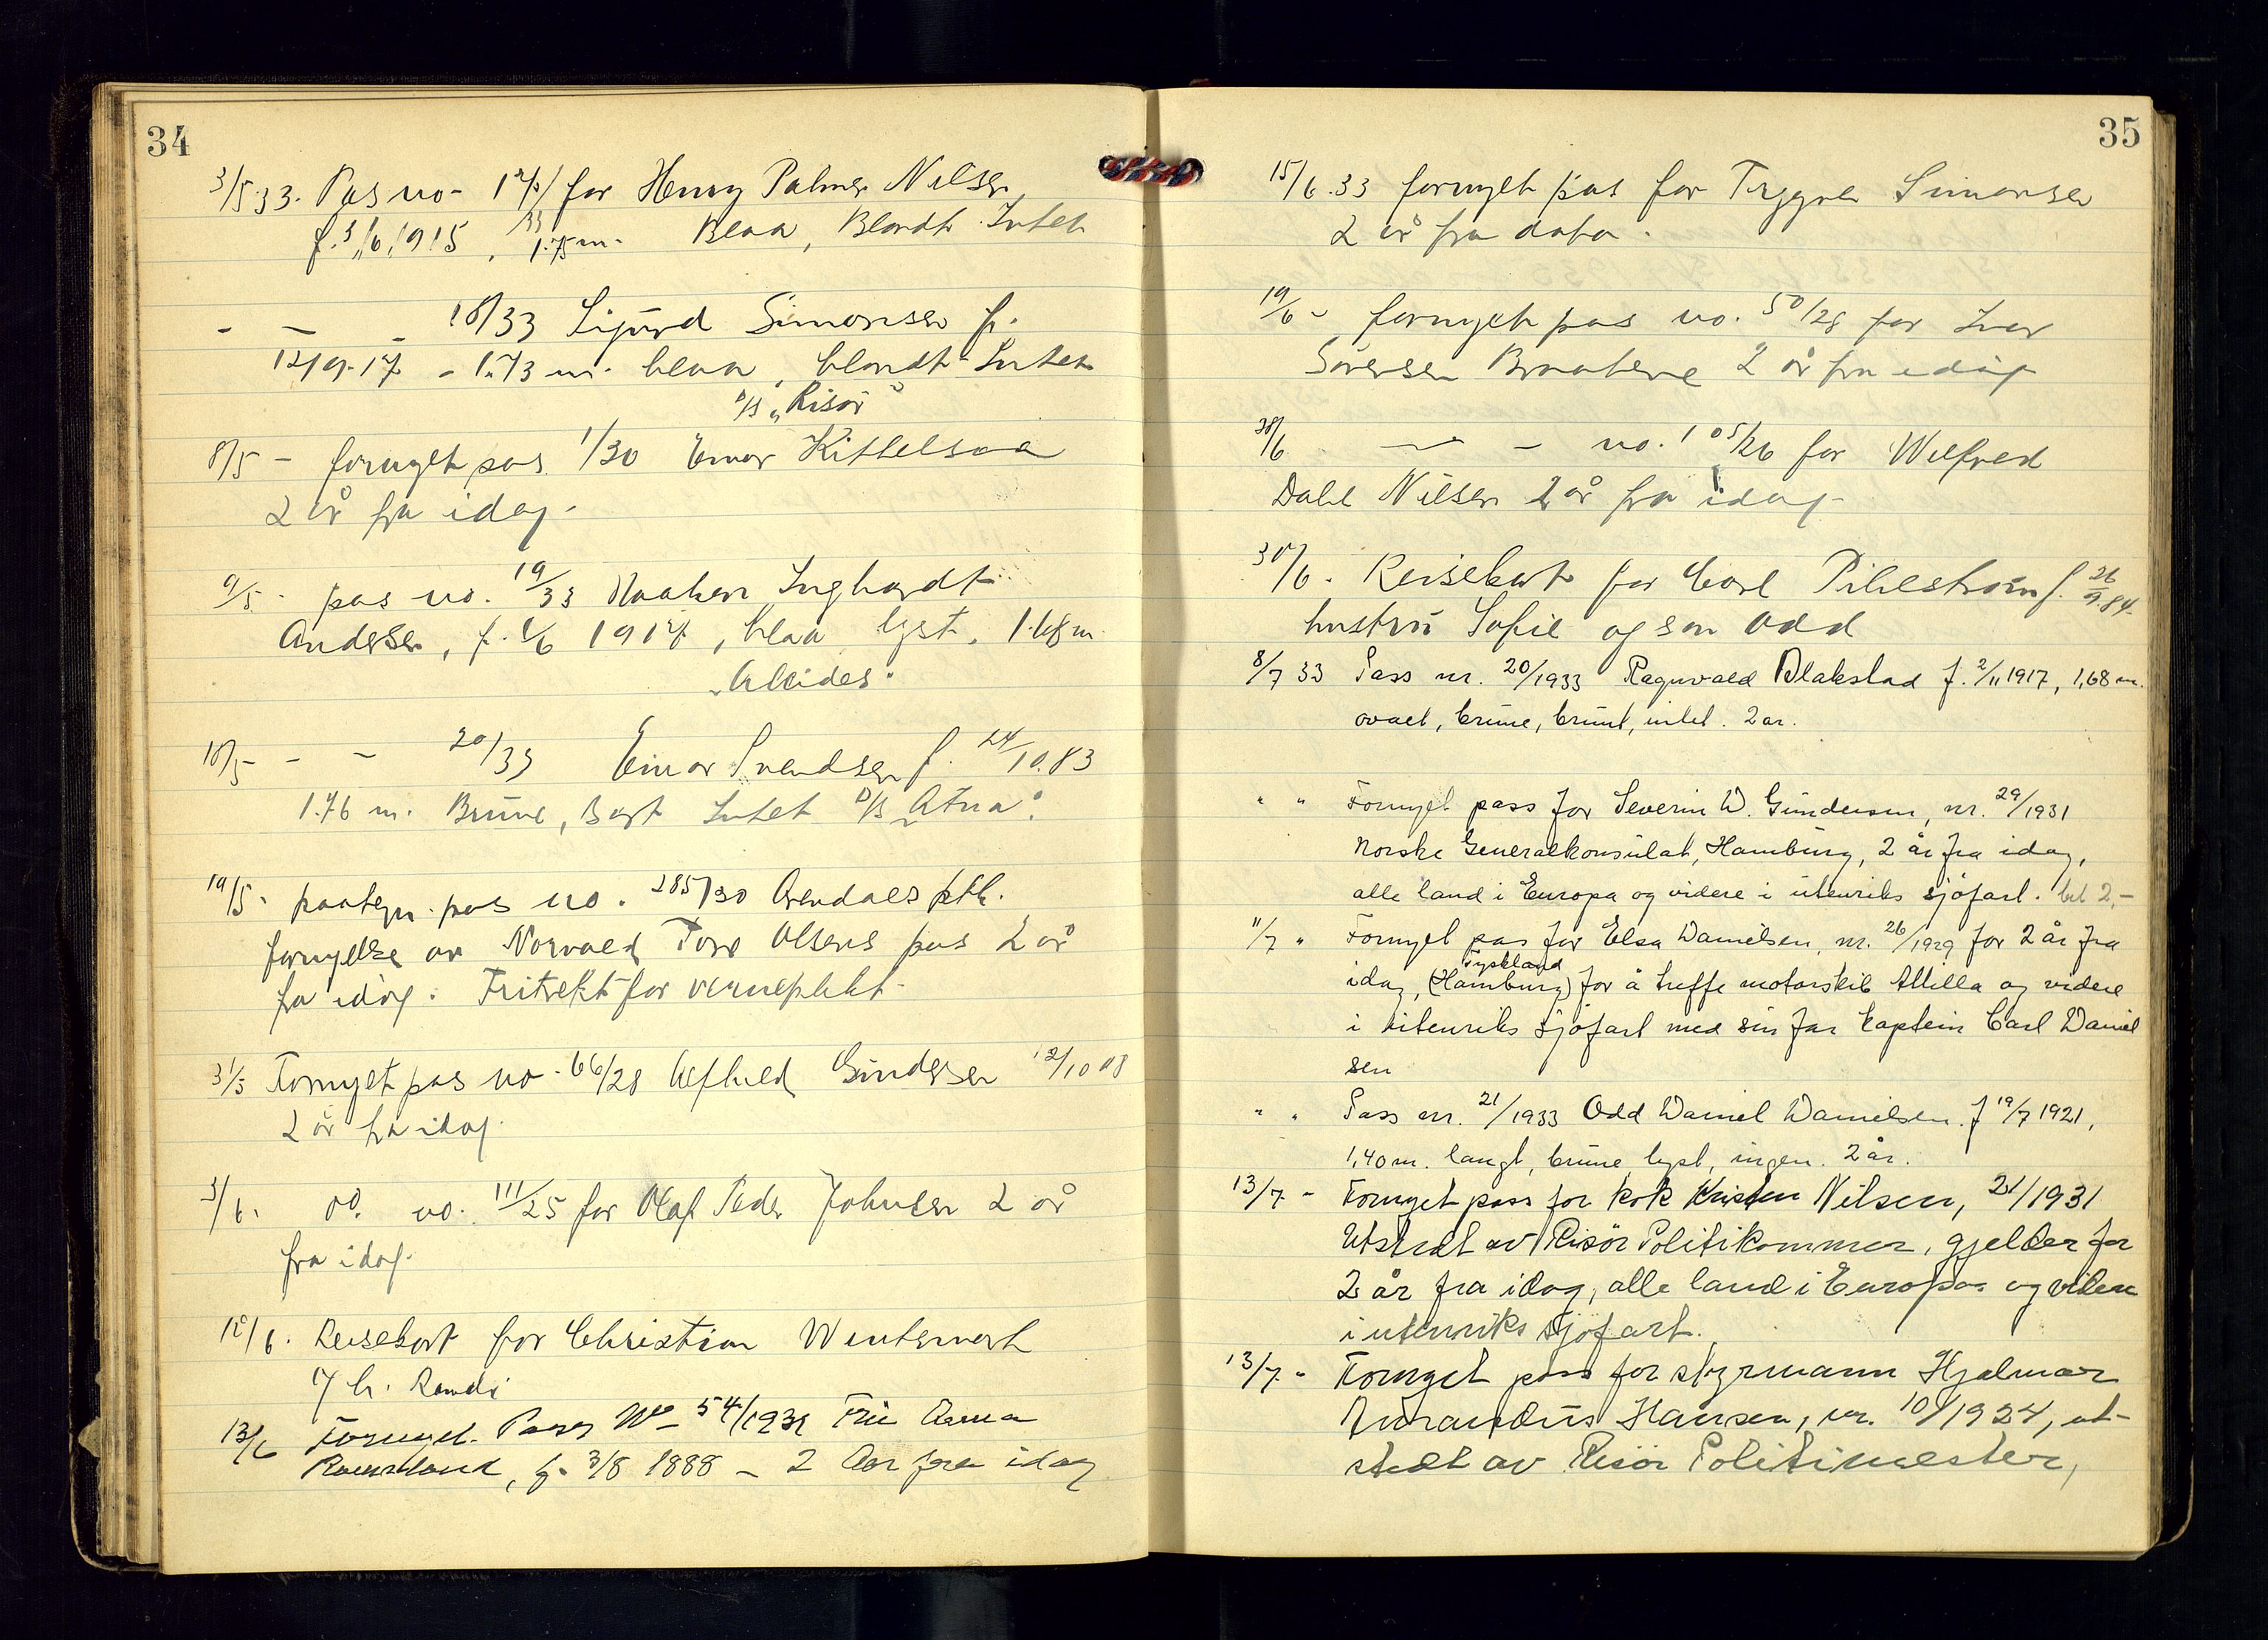 34
3/5 33. Pas no - 17/33 for Henry Palmer Nilsen
f. 3/6 1915, 1.75 m. Blaa, Blondt Intet
- - - 18/33 Sigurd Simonsen f.
12/9.17 - 1.73 m. blaa, blondt Intet
D/S „Risør"
8/5 - fornyet pas 1/30 Einar Kittelsaa
2 år fra idag.
9/5 - pas no. 19/33 Haaken Inghardt
Andersen, f. 6/6 1914, blaa lyst, 1.68 m.
„Alcides"
18/5 - - 20/33 Einar Svendsen f. 24/10.83
1.76 m. Brune, Sort Intet D/S „Atna"
19/5 - paategn. pas no. 285/30 Arendals ptk.
fornyelse av Norvald Tore Olsens pas 2 år
fra idag. Fritrekt for verneplikt.
31/5 Fornyet pas no - 66/28 Alfhild Gundersen 12/10 08
2 år fra idag.
3/6. do. no. 111/25 for Olaf Peder Johnsen 2 år
fra idag.
12/6. Reisekort for Christian Wintermark
13/6 Fornyet Pass No - 54/1931 Frü Anna
f. 3/8 1888 - 2 Aar fra idag
35
15/6.33 fornyet pas for Trygve Simonsen
2 år fra dato.
19/6 - fornyet pas no. 50/28 for Ivar
Sørensen Braatene 2 år fra idag
28/6 — - no. 105/26 for Wilfred
Dahl Nilsen 2 år fra idag
30/6. Reisekort for Carl Pihlstrøm f. 26/9.84.
hustrü Sofie og søn Odd
8/7 33 Pass nr. 20/1933 Ragnvald Blakstad f. 2/11 1917, 1,68 m.
ovalt, brüne, brünt, intet. 2 år.
" " Fornyet pass for Severin W. Gündersen, nr. 29/1931
Norske Generalkonsülat, Hambürg, 2 år fra idag,
alle land i Europa og videre i ütenriks sjøfart. bet 2,-
11/7 " Fornyet pas for Elsa Danielsen, nr. 26/1929 for 2 år fra
Tyskland
idag, (Hambürg) for å treffe motorskib Attilla og videre
i ütenriks sjøfart med sin far kaptein Carl Daniel
sen
" " Pass nr. 21/1933 Odd Daniel Danielsen. f 19/7 1921,
1,40 m. langt, brüne, lyst, ingen. 2 år.
13/7 - Fornyet pass for kok Kristen Nilsen, 21/1931
Utstedt av Risør Politikammer, gjelder for
2 år fra idag, alle land i Europa og videre
i utenriks sjøfart.
13/7 - Fornyet pass for styrmann Hjalmar
Amandüs Hansen, nr. 10/1924, ut-
stedt av Risør Politimester,